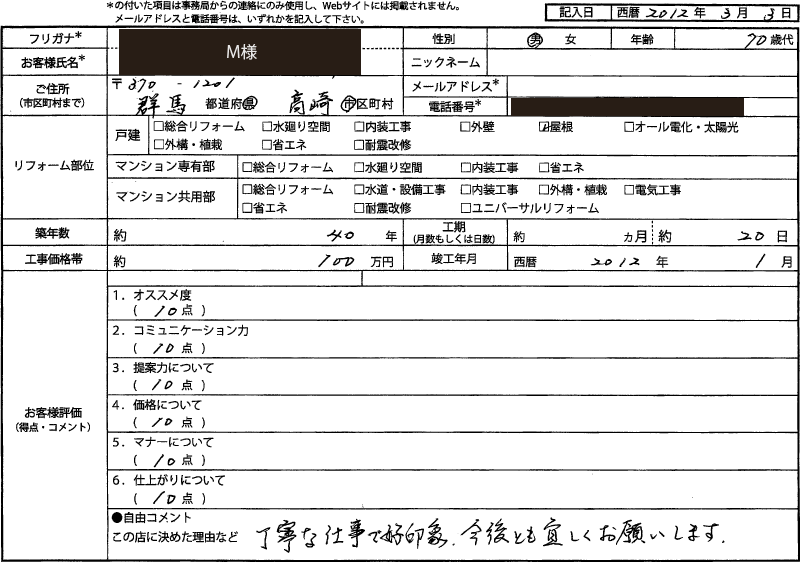 *の付いた項目は事務局からの連絡にのみ使用し、Webサイトには掲載されません。
メールアドレスと電話番号は、いずれかを記入して下さい。
記入日 西暦 2012 年 3 月 3 日
フリガナ* 性別 男 女 年齢 70 歳代
お客様氏名* M様 ニックネーム
ご住所 (市区町村まで) 〒370-1201 メールアドレス*
群馬 都道府県 高崎 市区町村 電話番号*
リフォーム部位
戸建 □総合リフォーム □水廻り空間 □内装工事 □外壁 ☑屋根 □オール電化・太陽光
□外構・植栽 □省エネ □耐震改修
マンション専有部 □総合リフォーム □水廻り空間 □内装工事 □省エネ
マンション共用部 □総合リフォーム □水道・設備工事 □内装工事 □外構・植栽 □電気工事
□省エネ □耐震改修 □ユニバーサルリフォーム
築年数 約 40 年 工期 (月数もしくは日数) 約 カ月 約 20 日
工事価格帯 約 100 万円 竣工年月 西暦 2012 年 1 月
お客様評価
(得点・コメント)
1．オススメ度
( 10 点 )
2．コミュニケーション力
( 10 点 )
3．提案力について
( 10 点 )
4．価格について
( 10 点 )
5．マナーについて
( 10 点 )
6．仕上がりについて
( 10 点 )
●自由コメント
この店に決めた理由など 丁寧な仕事で好印象、今後とも宜しくお願いします。